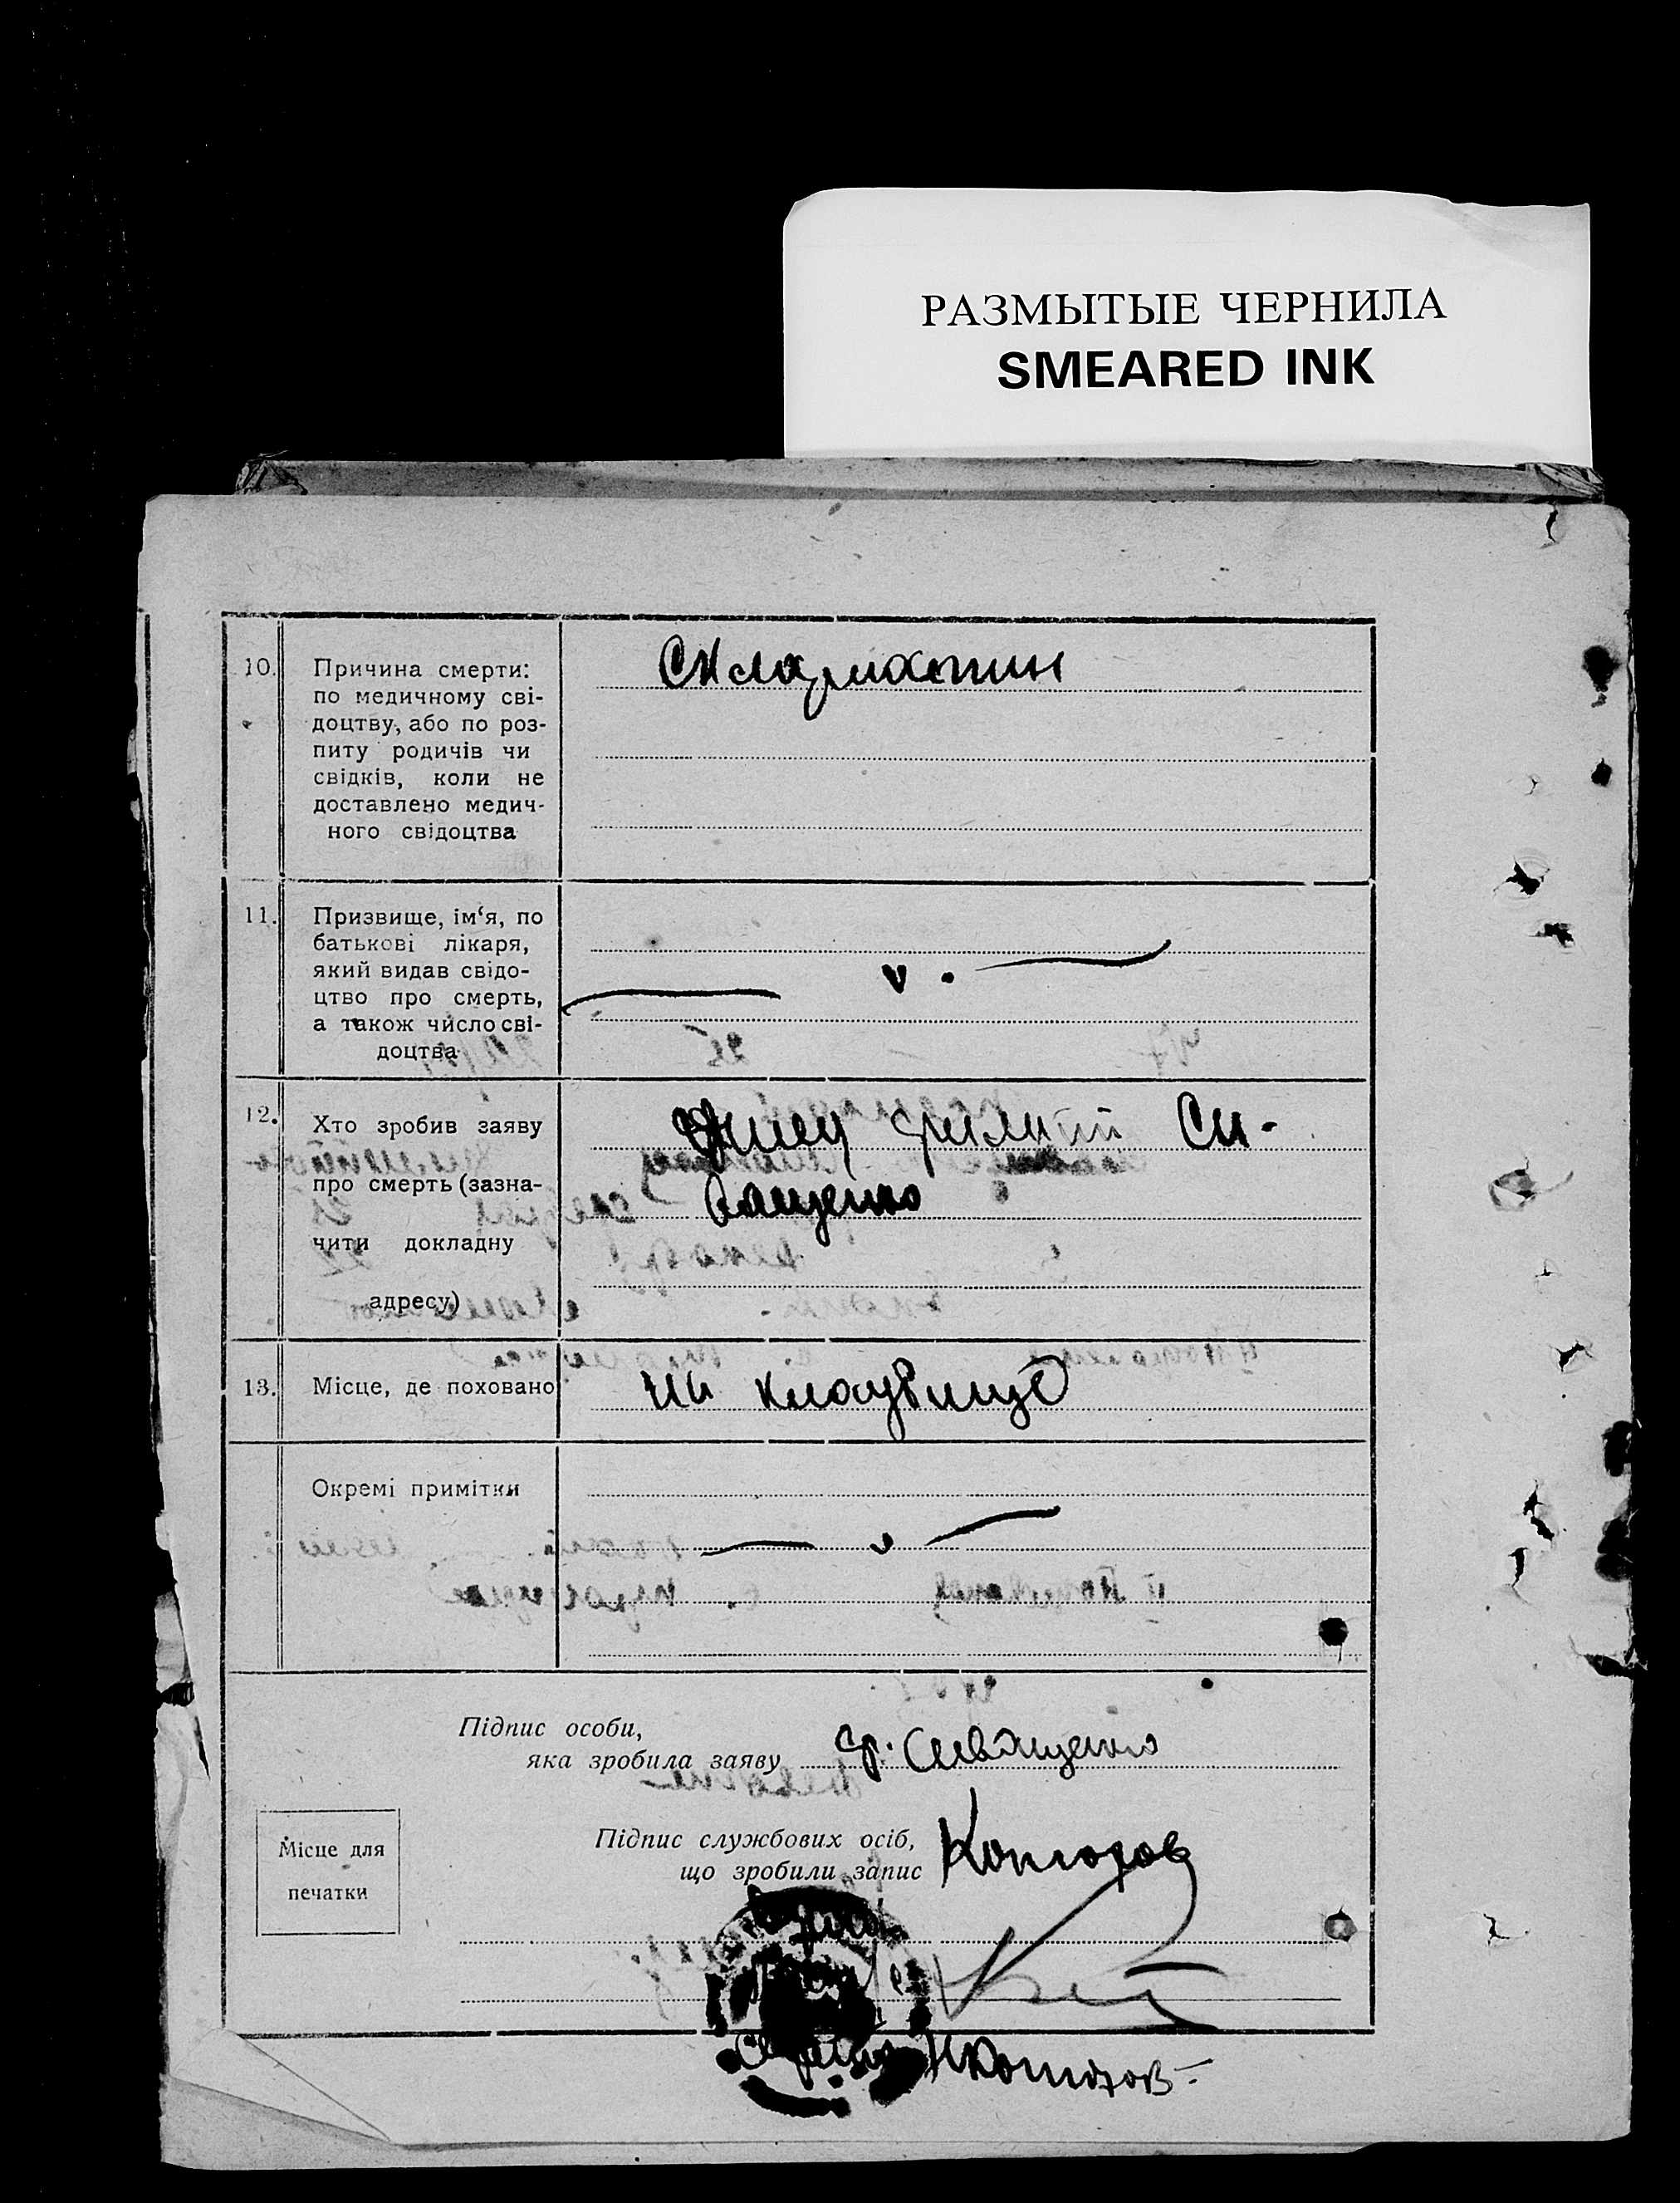 РАЗМЫТЫЕ ЧЕРНИЛА
SMEARED INK
10.
Причина смерти:
по медичному сві-
доцтву, або по роз-
питу родичів чи
свідків, коли не
доставлено медич-
ного свідоцтва
11.
Призвище, ім‘я, по
батькові лікаря,
який видав свідо-
цтво про смерть,
а також число сві-
доцтва
12.
Хто зробив заяву
про смерть (зазна-
чити докладну
адресу)
Си-
ващенко
13.
Місце, де поховано
на кладбищі
Окремі примітки
Підпис особи,
яка зробила заяву гр. Сиващенко
Підпис службових осіб,
що зробили запис
Місце для
печатки